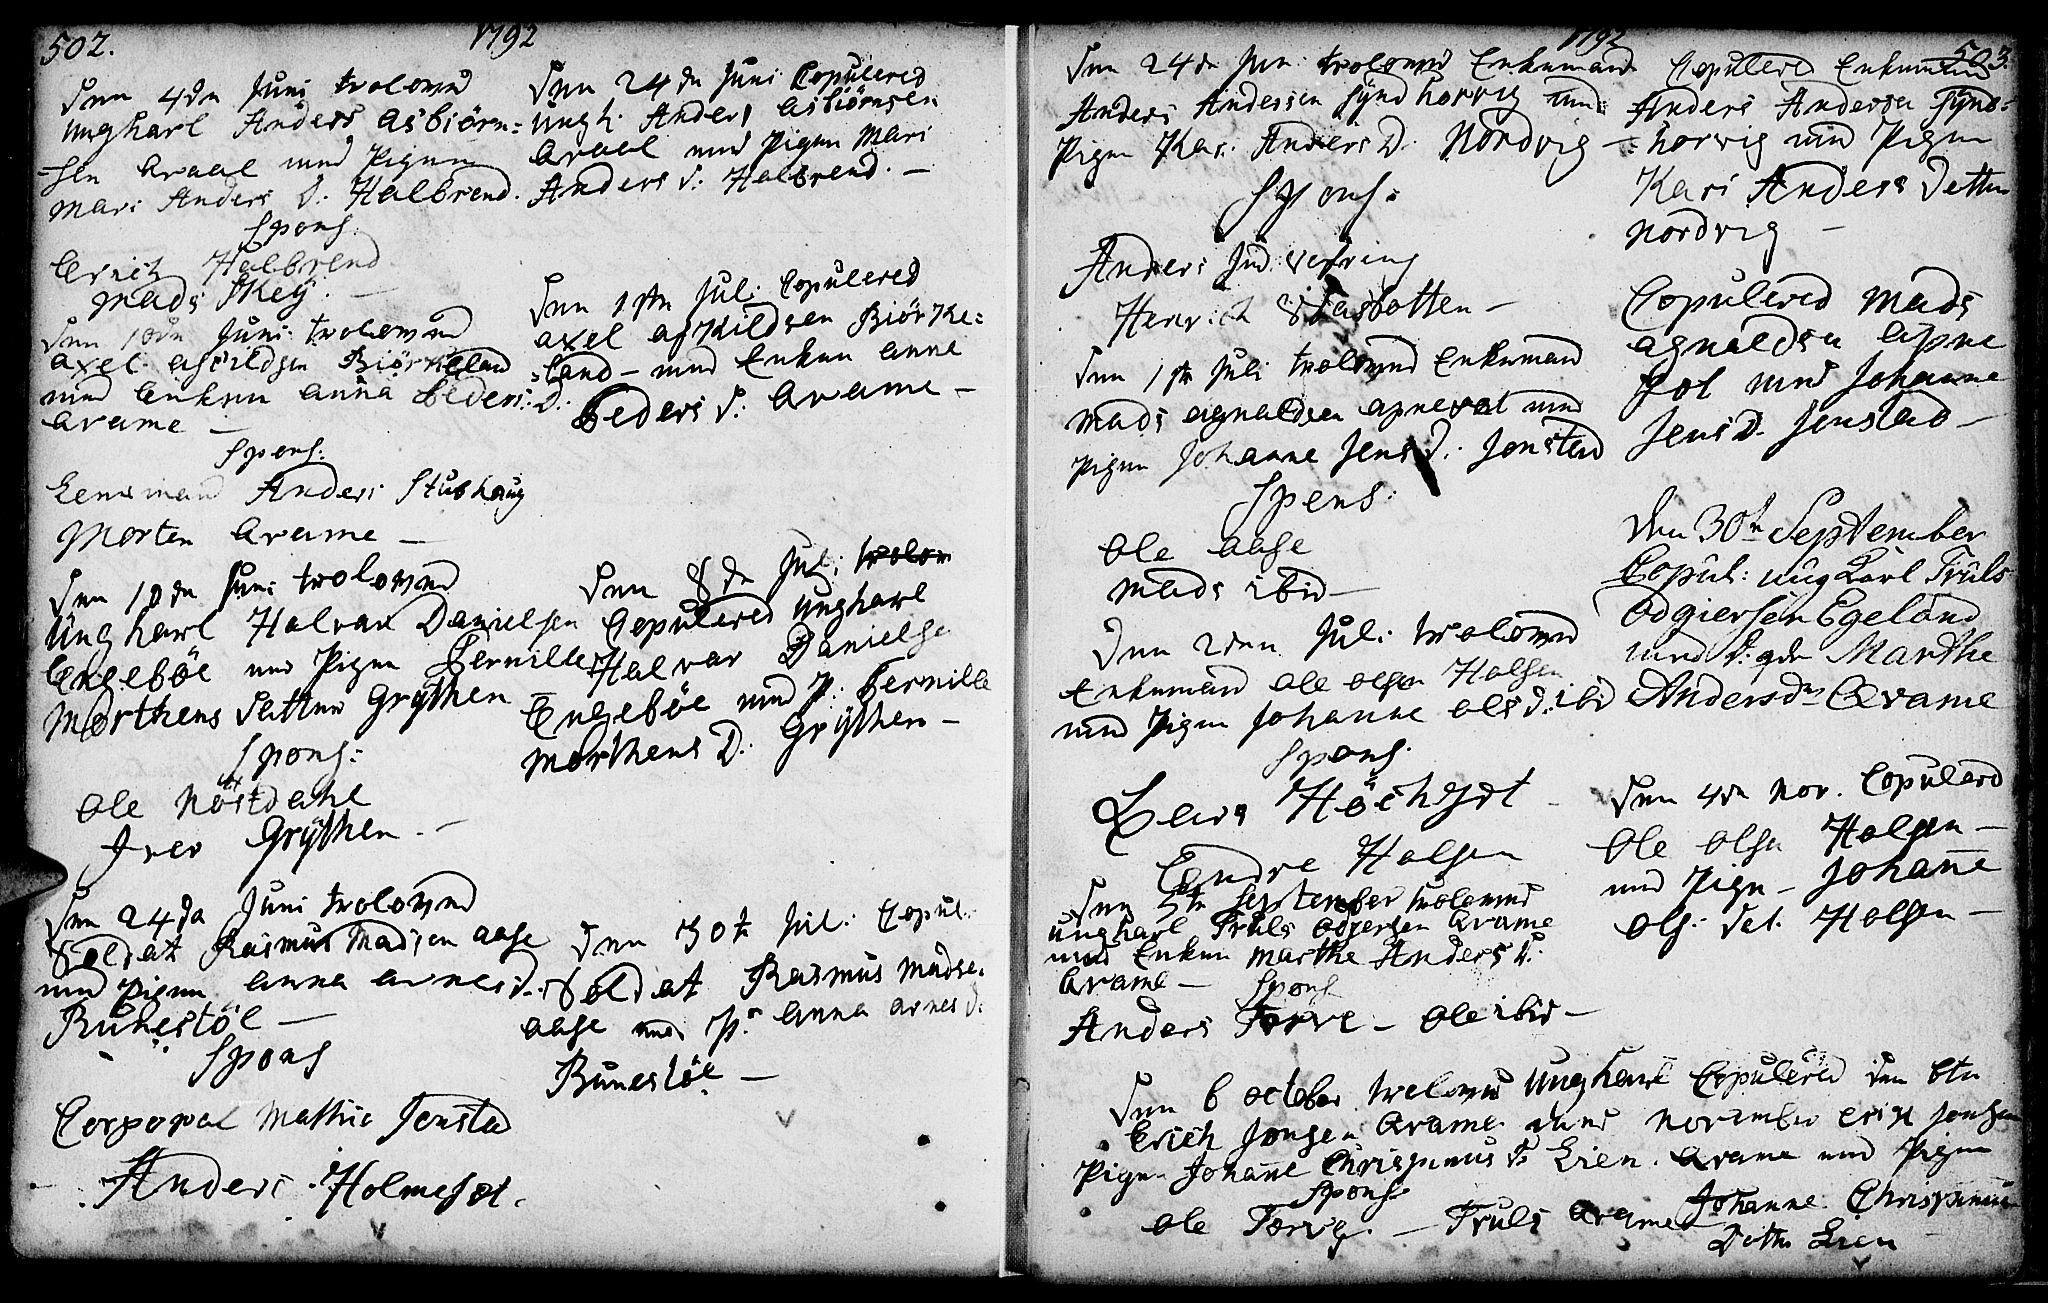 502.
1792
Den 4de Juni trolowed
Ungkarl Anders Asbiörn=
=sen Kraal med Pigen
Mari Anders D: Halbrend.
Spons:
Erich Halbrend
Mads Skey. —
Den 10de Juni trolowed
Axel Askildsen Biörkeland
med Enken Anna Peders: D:
Krame —
Spons:
Lensmand Anders Stubhaug
Morten Krame —
Den 10de Juni trolowed
Ungkarl Halvar Danielsen
Engeböe med Pigen Pernille
Morthens Datter Grÿthen
Spons:
Ole Nöstdahl
Iver Grÿthen. —
Den 24de Juni trolowed
Soldat Rasmus Madsen Aase
med Pigen Anna Arnes D:
Runestöe —
Spons
Corporal Mathie Jonstad
Anders Holmeset.
Den 24de Juni Copulered
Ungk: Anders Asbiörnsen
Kraal med Pigen Mari
Anders D: Halbrend. —
Den 1ste Juli Copulered
Axel Askildsen Biörke=
=land — med Enken Anne
Peders D: Krame —
Den 8de Juli trolow
Copulered Ungkarl
Halvar Danielse
Engeböe med P: Pernille
Morthens D: Grÿthen —
Den 30te Jul: Copul:
Soldat Rasmus Madse
Aase med P: Anna Arnes D:
Runestöe —
1792
503.
Den 24de Juni trolowed Enkemand
Anders Andersen Sÿndhorvig med
Pigen Kari Anders D: Nordvig —
Spons:
Anders Ind. Vefring
Henrich Stasbotten —
Den 1ste Juli trolowed Enkemand
Mads Agnaldsen Apnesol med
Pigen Johanne Jens D: Jonstad
Spons:
Ole Aase
Mads ibid —
Den 2den Juli trolowed
Enkemand Ole Olsen Halsen
med Pigen Johanne Ols D: ibid
Spons.
Lars
Endre Halsen
Den 5te September trolowed
Ungkarl Truls Odgersen Krame
med Enken Marthe Anders D:
Krame — Spons
Anders Torve — Ole ibid —
Den 6 October trolowed Ungkarl
Erich Jonsen Krame med
Pigen Johanne D: Lien.
Spons
Ole Torve. — Truls Krame
Copulered Enkemand
Anders Andersen Sÿnd=
=horvig med Pigen
Kari Anders Detter
Nordvig —
Copulered Mads
Agnaldsen Apne
Sol med Johanne
Jens D. Jonstad —
Den 30te September
Copul: ungkarl Truls
Odgiersen Egeland
med Marthe
Andersdr Krame
Den 4de Nov. Copulered
Ole Olsen Halsen —
med Pigen — Johanne
Ols: Det. Halsen —
Copulered den
November Erich Jonsen
Krame med Pigen
Johanne
Dotter Lien